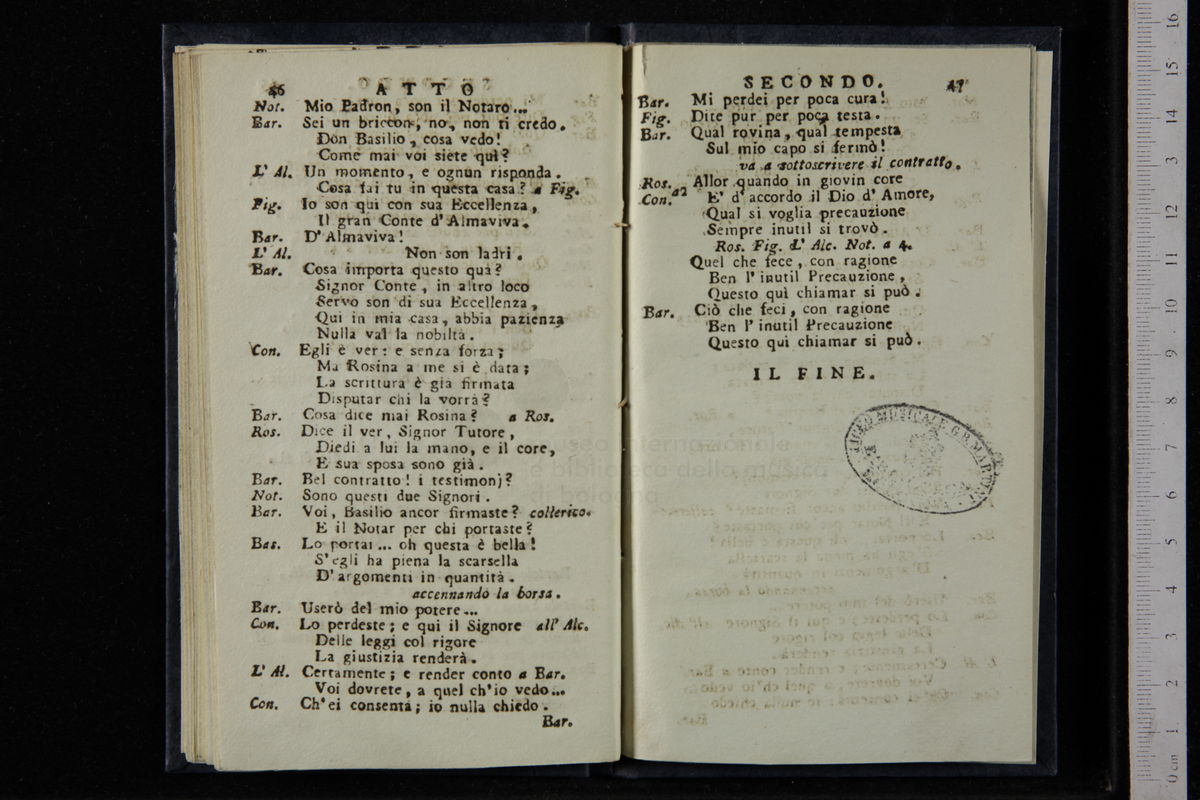 46 ATTO
Not. Mio Padron, son il Notaro...
Bar. Sei un briccon, no, non ti credo.
Don Basilio, cosa vedo!
Come mai voi siete quì?
L' Al. Un momento, e ognun risponda.
Cosa fai tu in questa casa? a Fig.
Fig. Io son qui con sua Eccellenza,
Il gran Conte d'Almaviva.
Bar. D'Almaviva!
L' Al. Non son ladri.
Bar. Cosa importa questo quà?
Signor Conte, in altro loco
Servo son di sua Eccellenza,
Qui in mia casa, abbia pazienza
Nulla val la nobiltà.
Con. Egli è ver: e senza forza;
Ma Rosina a me si è data;
La scrittura è già firmata
Disputar chi la vorrà?
Bar. Cosa dice mai Rosina? a Ros.
Ros. Dice il ver, Signor Tutore,
Diedi a lui la mano, e il core,
E sua sposa sono già.
Bar. Bel contratto! i testimonj?
Not. Sono questi due Signori.
Bar. Voi, Basilio ancor firmaste? collerico.
E il Notar per chi portaste?
Bas. Lo portai... oh questa è bella!
S'egli ha piena la scarsella
D'argomenti in quantità.
accennando la borsa.
Bar. Userò del mio potere...
Con. Lo perdeste; e qui il Signore all' Alc.
Delle leggi col rigore
La giustizia renderà.
L' Al. Certamente; e render conto a Bar.
Voi dovrete, a quel ch'io vedo...
Con. Ch'ei consenta; io nulla chiedo.
Bar.
SECONDO. 47
Bar. Mi perdei per poca cura!
Fig. Dite pur per poca testa.
Bar. Qual rovina, qual tempesta
Sul mio capo si fermò!
va a sottoscrivere il contratto.
Ros. Allor quando in giovin core
Con. a2 E' d'accordo il Dio d'Amore,
Qual si voglia precauzione
Sempre inutil si trovò.
Ros. Fig. L' Alc. Not. a 4.
Quel che fece, con ragione
Ben l'inutil Precauzione,
Questo quì chiamar si può.
Bar. Ciò che feci, con ragione
Ben l'inutil Precauzione
Questo qui chiamar si può.
IL FINE.
LICEO MUSICALE G.B. MARTINI
museo internazionale
e biblioteca della musica
di bologna